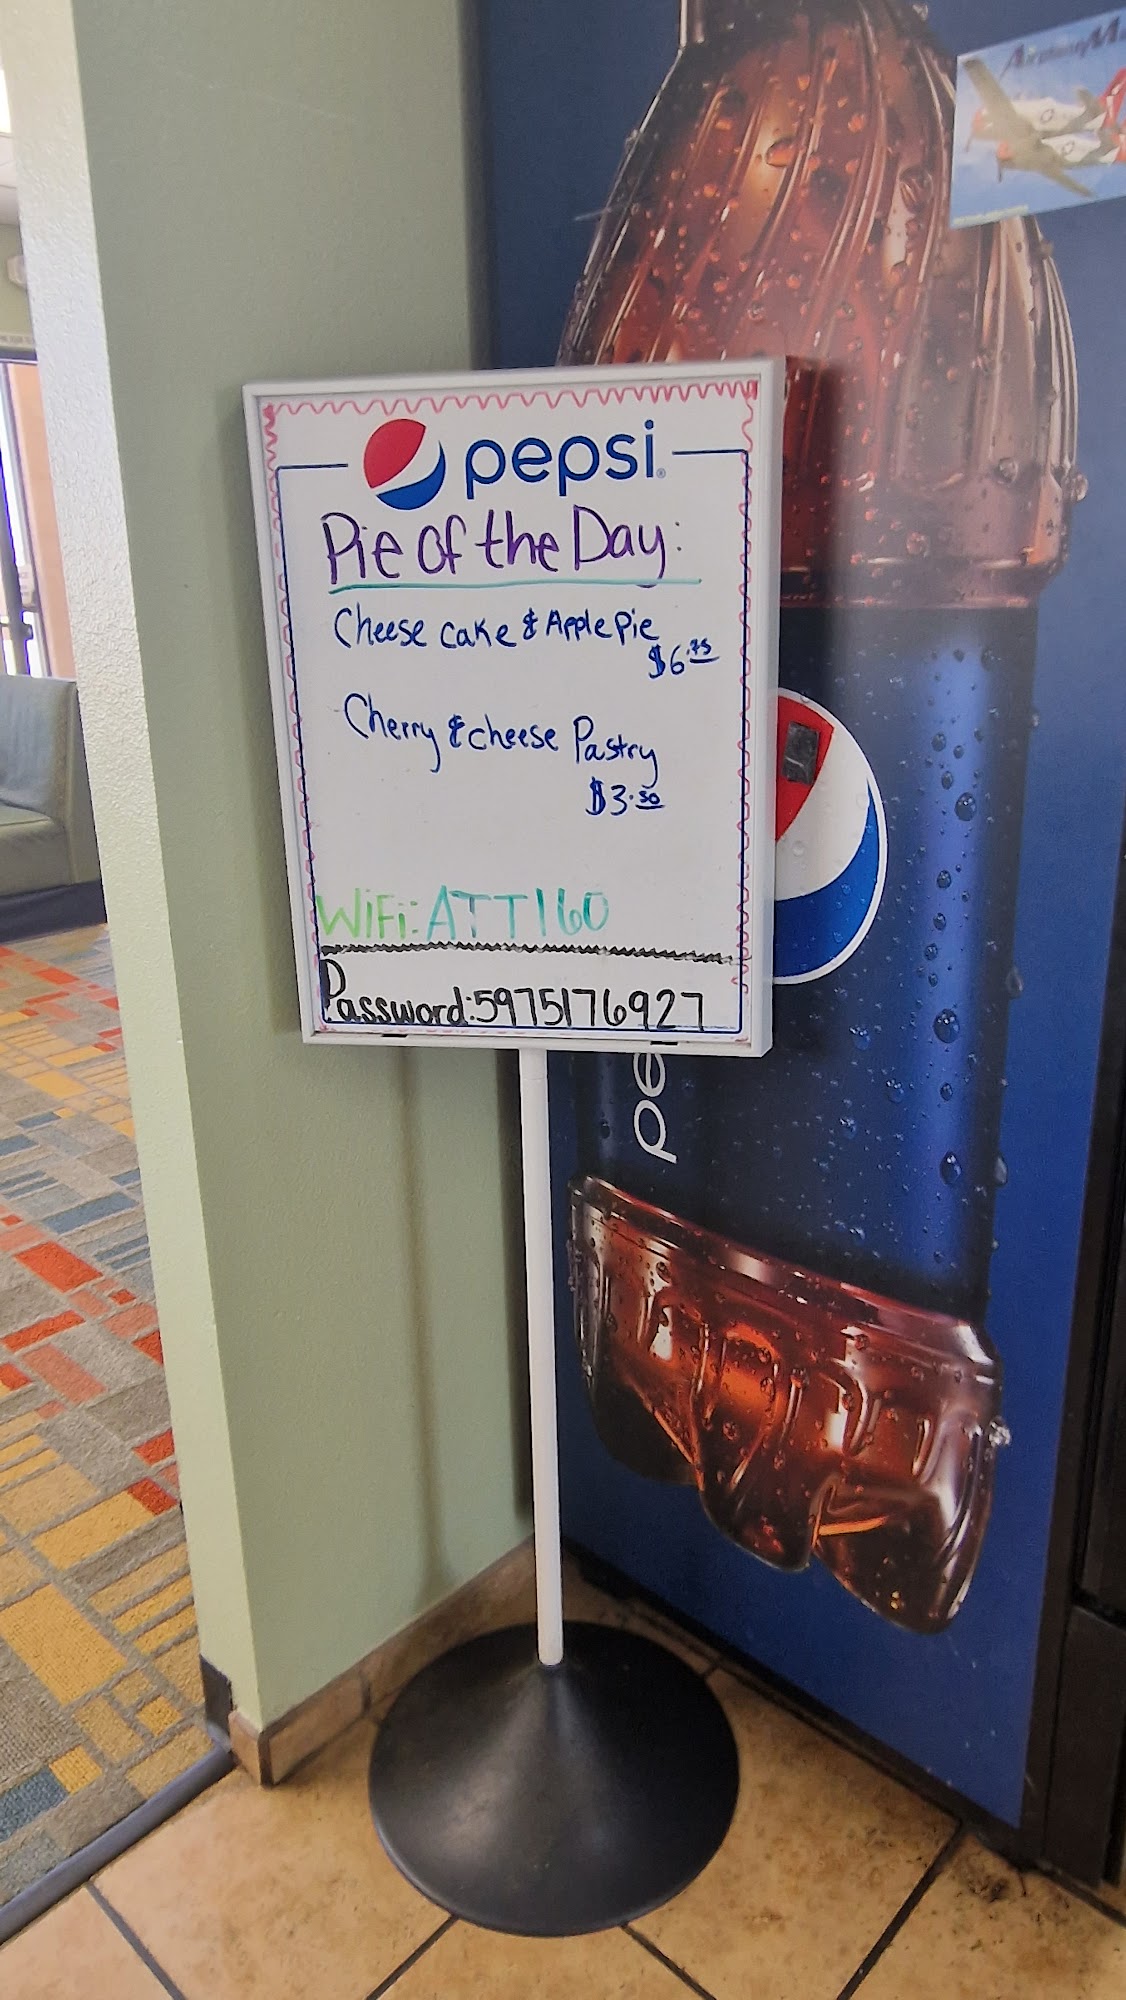 pepsi
Pie of the Day:
Cheese cake & Apple Pie
$6.75
Cherry & cheese Pastry
$3.50
WiFi: ATT160
Password: 5975176927
pe